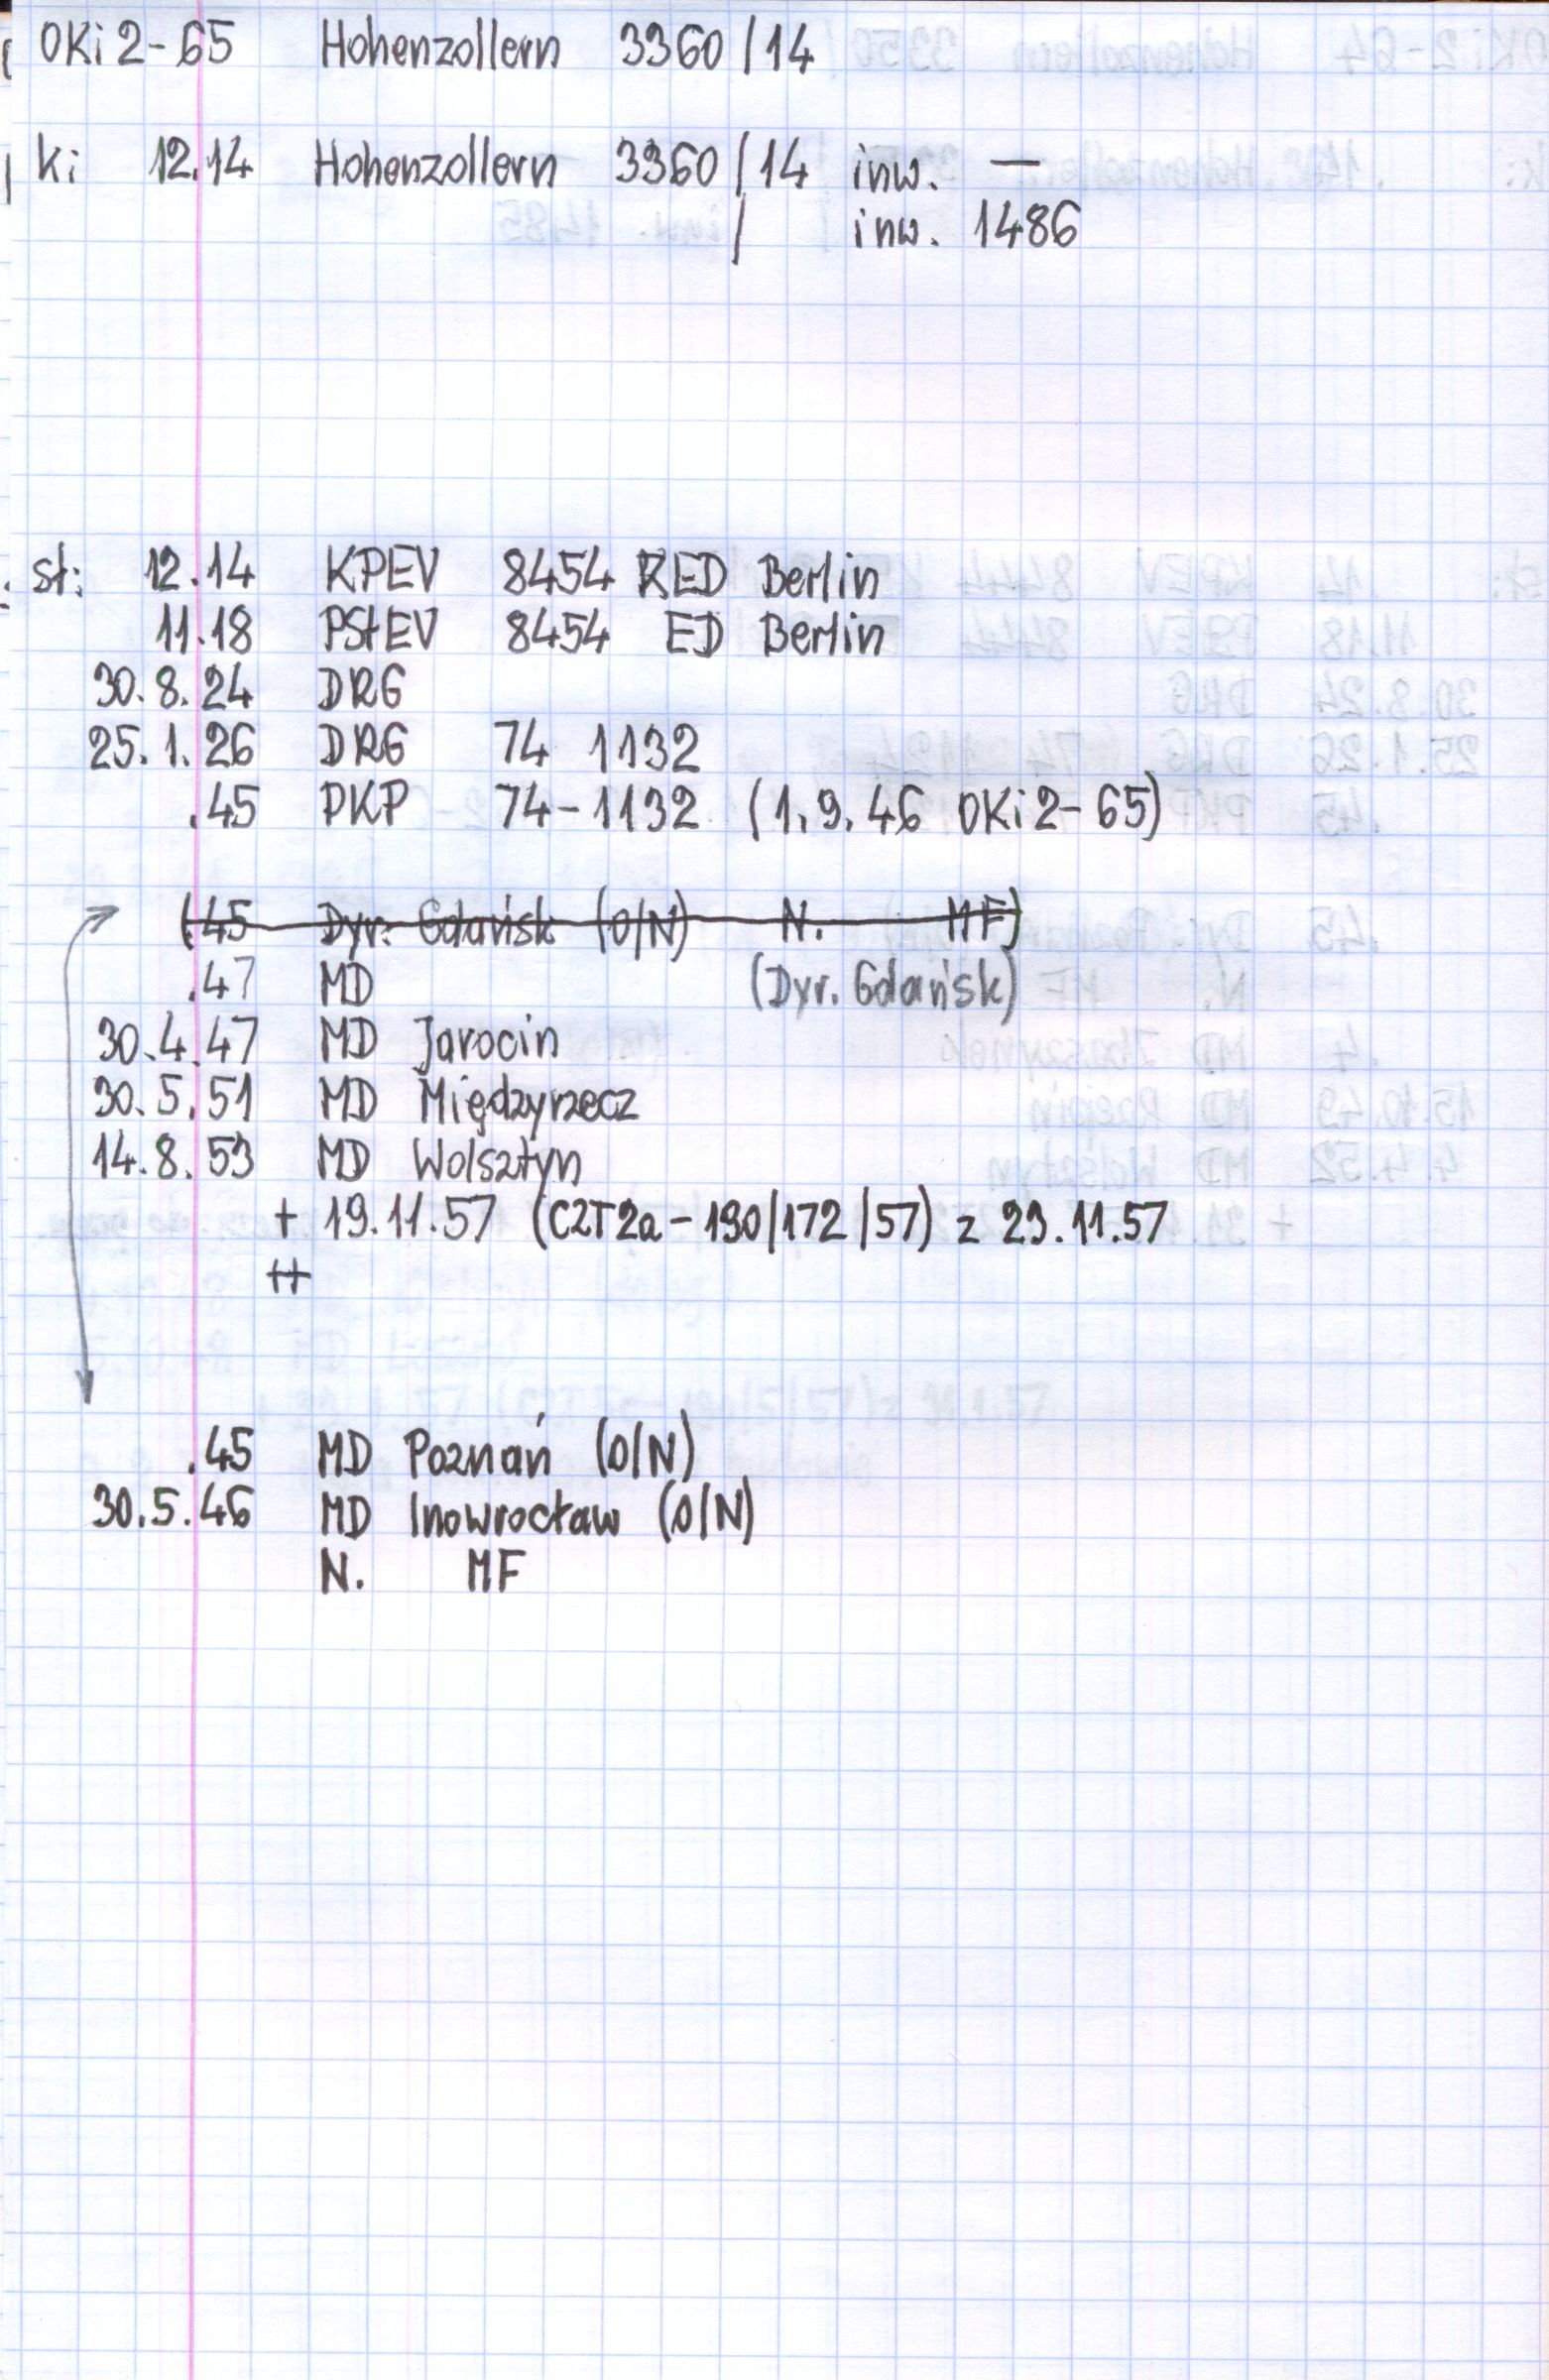 OKi2-65 Hohenzollern 3360/14
ki 12.14 Hohenzollern 3360/14 inw. —
/ inw. 1486
st: 12.14 KPEV 8454 KED Berlin
11.18 PStEV 8454 ED Berlin
30.8.24 DRG
25.1.26 DRG 74 1132
.45 PKP 74-1132 (1.9.46 OKi2-65)
(.45 Dyr. Gdańsk (O/N) N. MF)
.47 MD (Dyr. Gdańsk)
30.4.47 MD Jarocin
30.5.51 MD Międzyrzecz
14.8.53 MD Wolsztyn
+ 19.11.57 (CZT2a-190/172/57) z 29.11.57
++
.45 MD Poznań (O/N)
30.5.46 MD Inowrocław (O/N)
N. MF